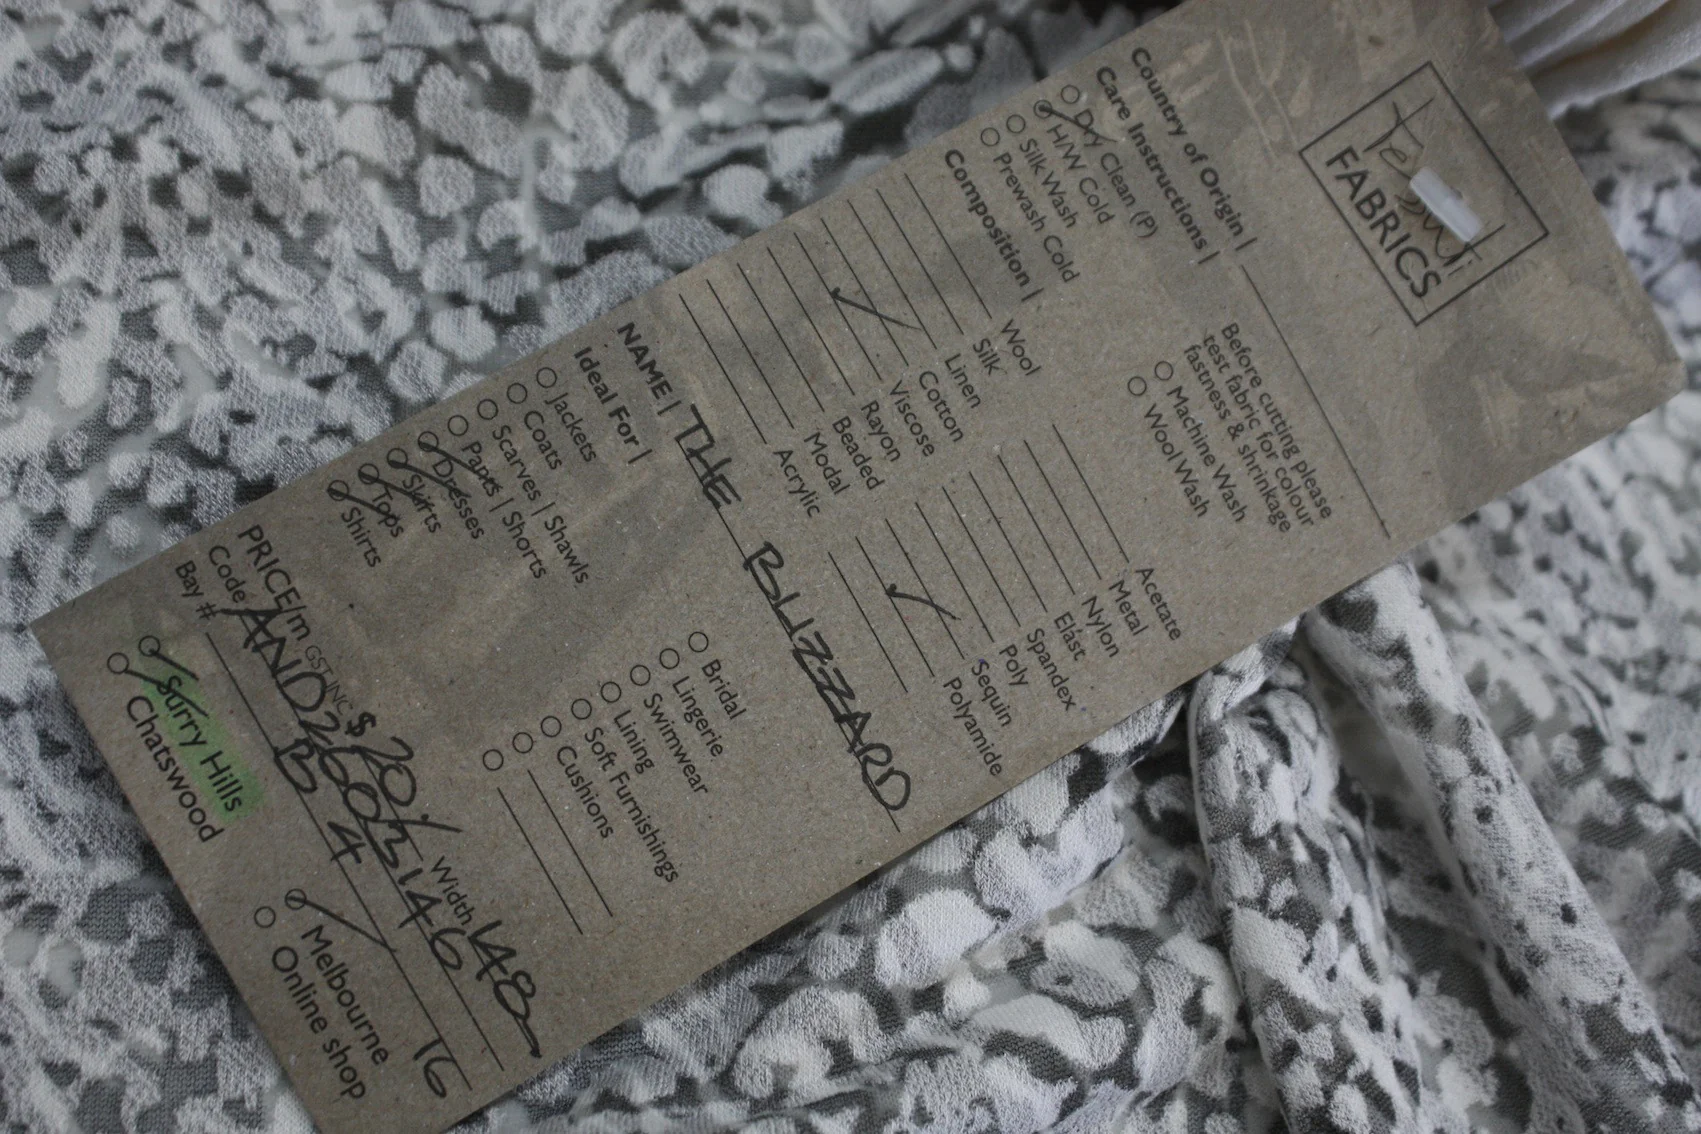 Tessuti
FABRICS
Country of Origin |
Care Instructions |
Dry Clean (P)
H/W Cold
Silk Wash
Prewash Cold
Before cutting please
test fabric for colour
fastness & shrinkage
Machine Wash
Wool Wash
Composition |
Wool
Silk
Linen
Cotton
Viscose
Rayon
Beaded
Modal
Acrylic
Acetate
Metal
Nylon
Elast
Spandex
Poly
Sequin
Polyamide
NAME | THE BLIZZARD
Ideal For |
Jackets
Coats
Scarves | Shawls
Pants | Shorts
Dresses
Skirts
Tops
Shirts
Bridal
Lingerie
Swimwear
Lining
Soft Furnishings
Cushions
PRICE/m GST INC $ 20/. Width 148
Code AND26003146
Bay # B4 TG
Surry Hills
Chatswood
Melbourne
Online shop